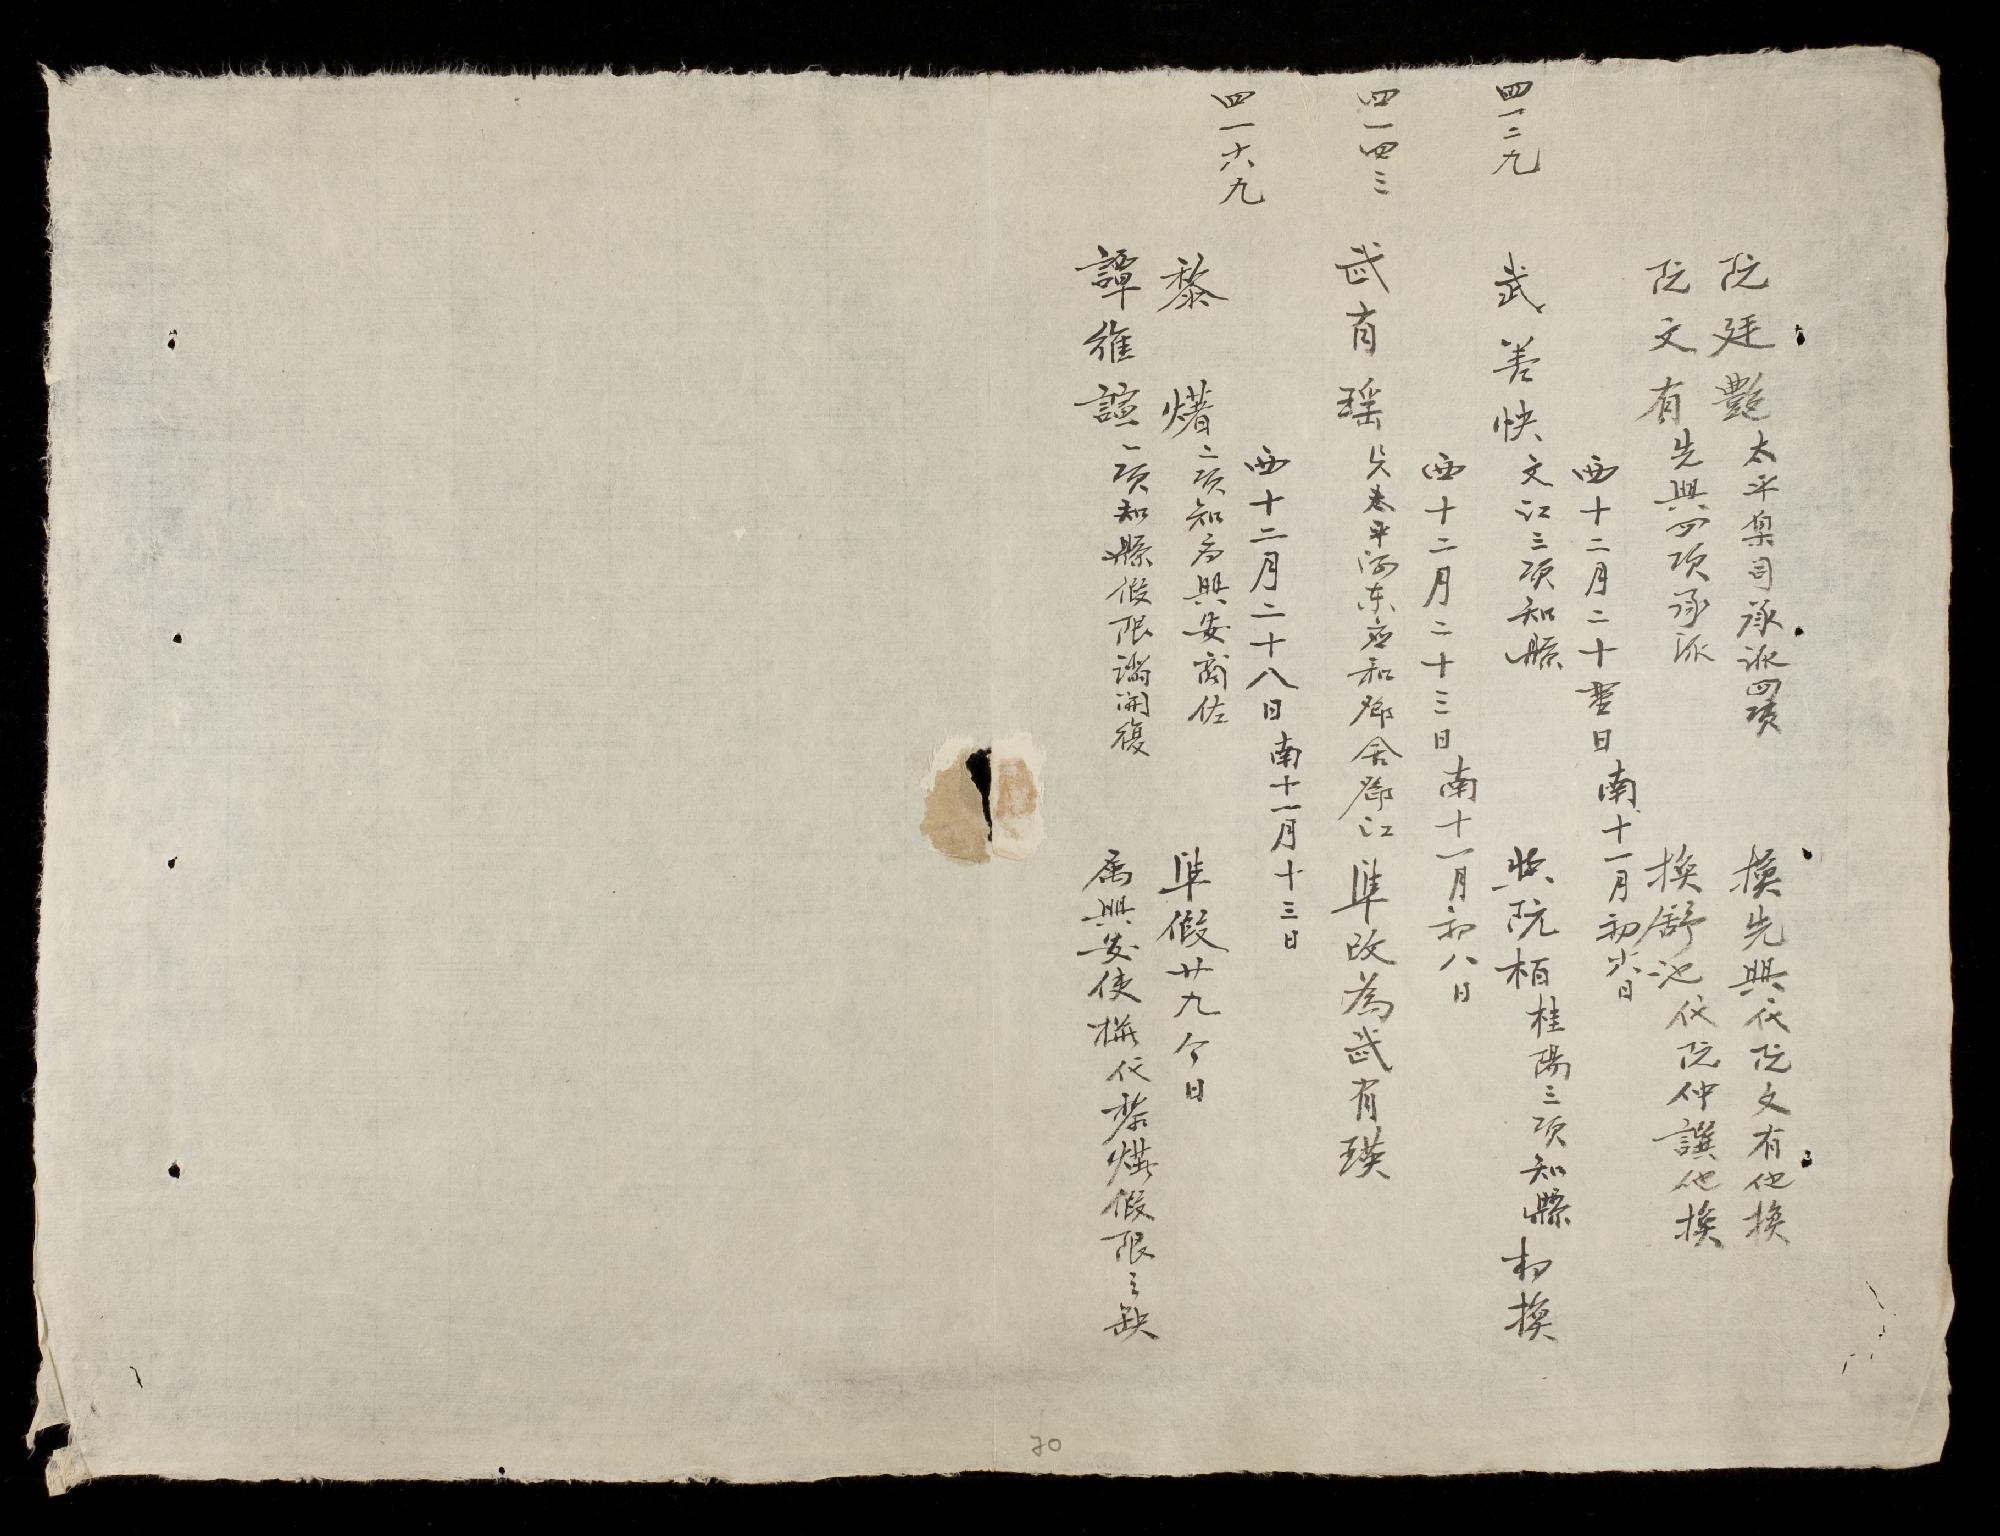 阮廷艷太平臬司承派四項 換先興代阮文有他換
阮文有先興四項承派 換舒池代阮仲譔他換
西十二月二十壹日南十一月初六日
四一二九
武善快文江三項知縣 與阮栢桂陽三項知縣相換
西十二月二十三日南十一月初八日
四一四三
武有瑶 太平 東 和 舍 江 準改為武有瑛
西十二月二十八日南十一月十三日
四一六九
黎㷡二項知 興安 佐 準假廿九今日
譚維諠一項知縣假限 開復 為興安使 代黎 假限之缺
70